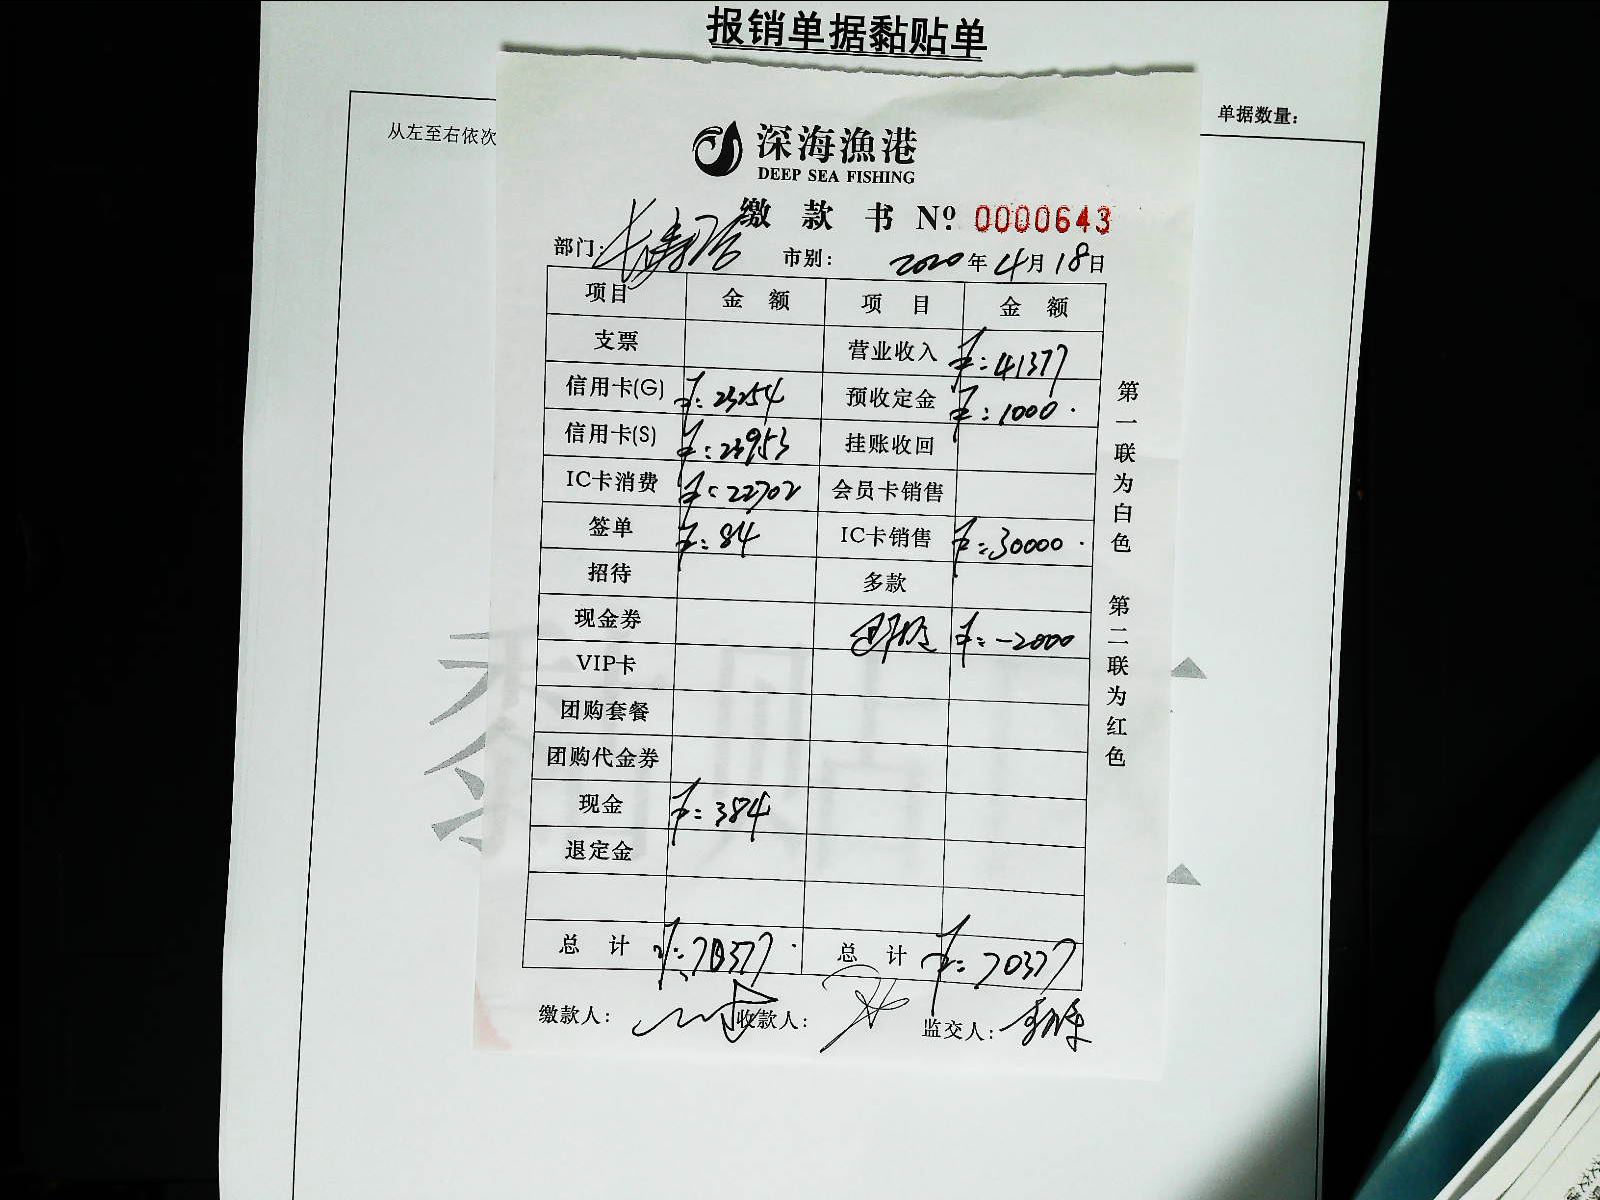 报销单据黏贴单
单据数量：
从左至右依次
深海渔港
DEEP SEA FISHING
缴款书 Nº 0000643
部门： 市别： 2020年4月18日
项目 金额 项目 金额
支票 营业收入 ¥:41377
信用卡(G) ¥:23254 预收定金 ¥:1000.
信用卡(S) ¥:23953 挂账收回
IC卡消费 ¥:22702 会员卡销售
签单 ¥:84 IC卡销售 ¥:30000.
招待 多款
现金券 ¥:-2000
VIP卡
团购套餐
团购代金券
现金 ¥:384
退定金
总计 ¥:70377. 总计 ¥:70377
缴款人： 收款人： 监交人：
第一联为白色 第二联为红色